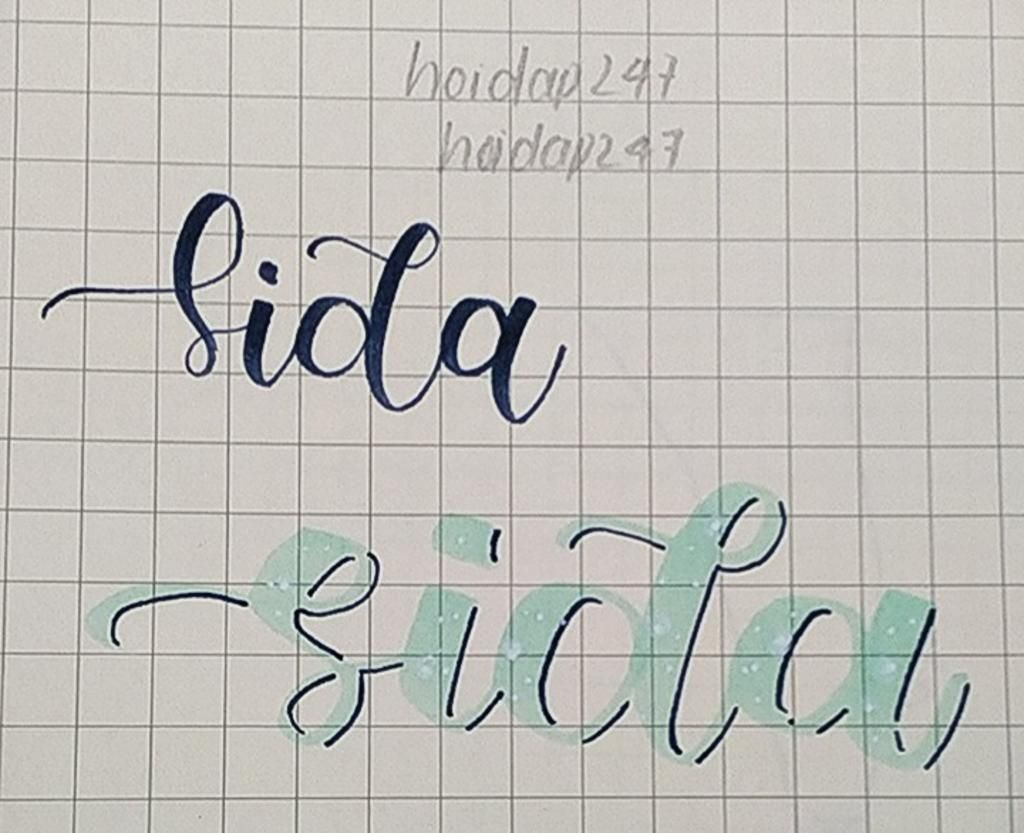 hoidap247
hoidap247
sida
sida